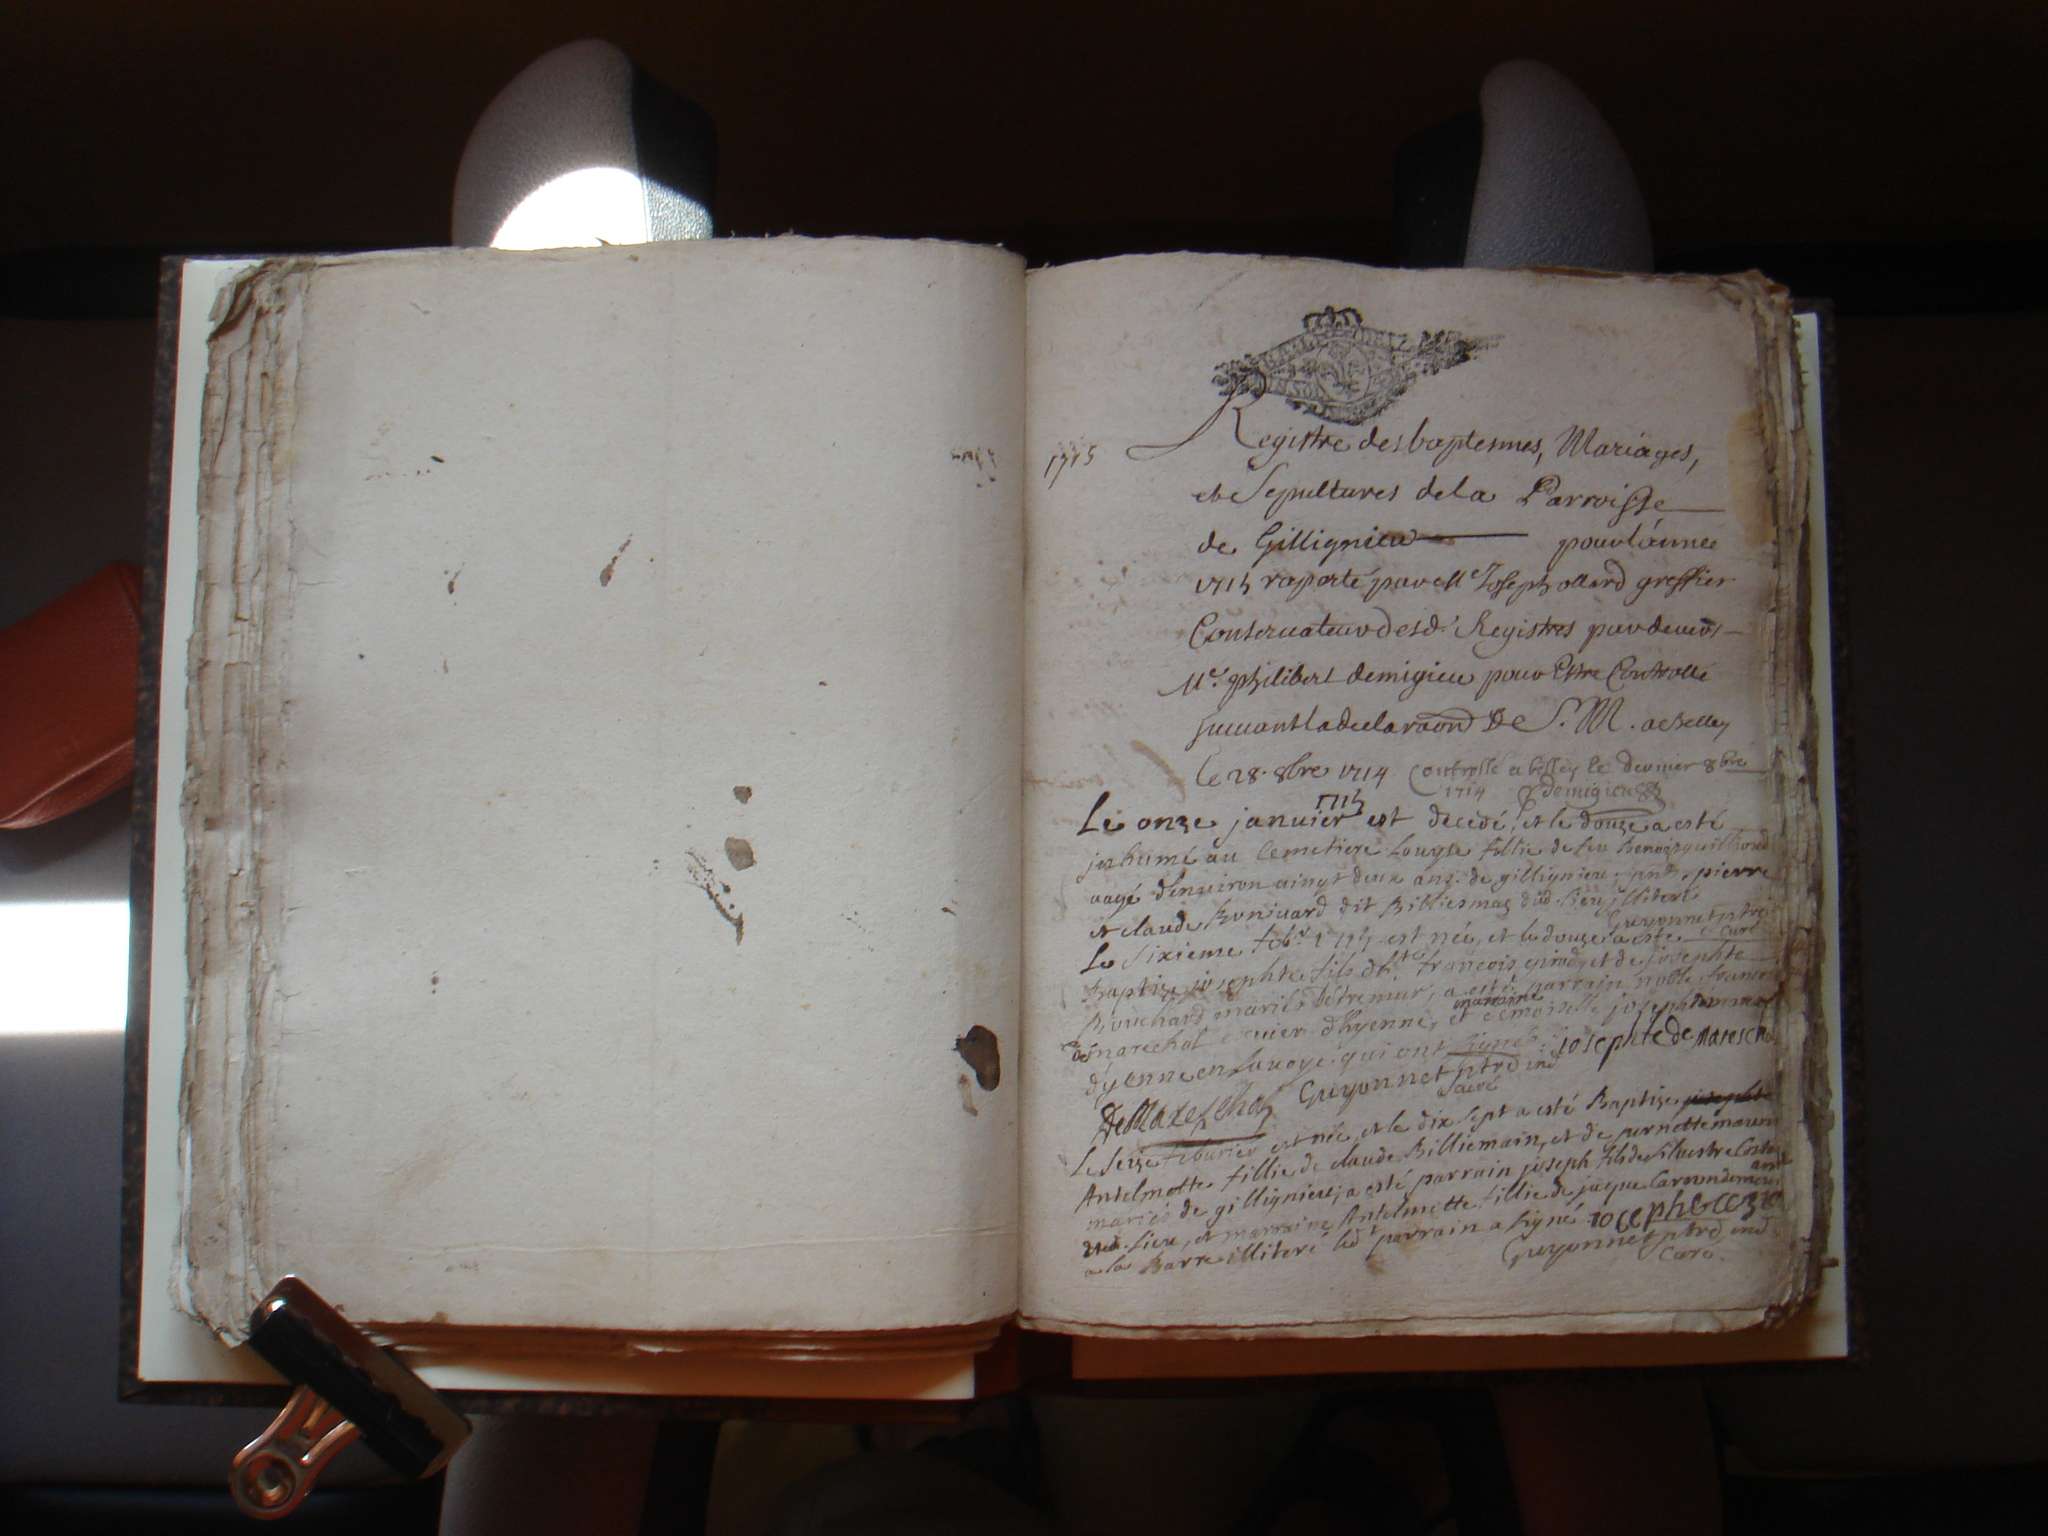 1715
Registre des baptesmes, Mariages,
et Sepultures de la Parroisse
de Gillignieu pour l'annee
1715 raporté par Me Joseph ollard greffier
Conservateur desd. Registres pardevers
Me. philibert demigieu pour Estre Controllé
suivant la declaraon De S. M. a belley
le 28. 8bre 1714 Controllé a belley le dernier 8bre
1714 demigieu
1715
Le onze janvier est decedé, et le douze a esté
inhumé au Cemetiere Louyse fillie de feu Benoist
aagé d'environ vingt deux ans. de gillignieu. pnts. pierre
et claude Bonivard dit Billiemaz dud. lieu illiteré
Guyonnet ptre
curé
Le sixieme feb. 1715 est née, et le douze a esté
Baptize josephte fils d' françois girod, et de josephte
Brouchard mariés, a esté parrain noble françois
marraine
de marechal d'hyenne, et josephte
dyenne en Savoye qui ont signé. iosephte de Mareschal
De Mareschal Guyonnet ptre ind
Curé
Le seize feburier est née, et le dix sept a esté Baptize josephte
Antelmette fillie de claude Billiemain, et de pernette
mariés de gillignieu, a esté parrain joseph fils de Silvestre
dud. lieu, et marraine Antelmette fillie de jaque
a la Barre illiteré led parrain a signé. ioseph
Guyonnet ptre ind
Curé.